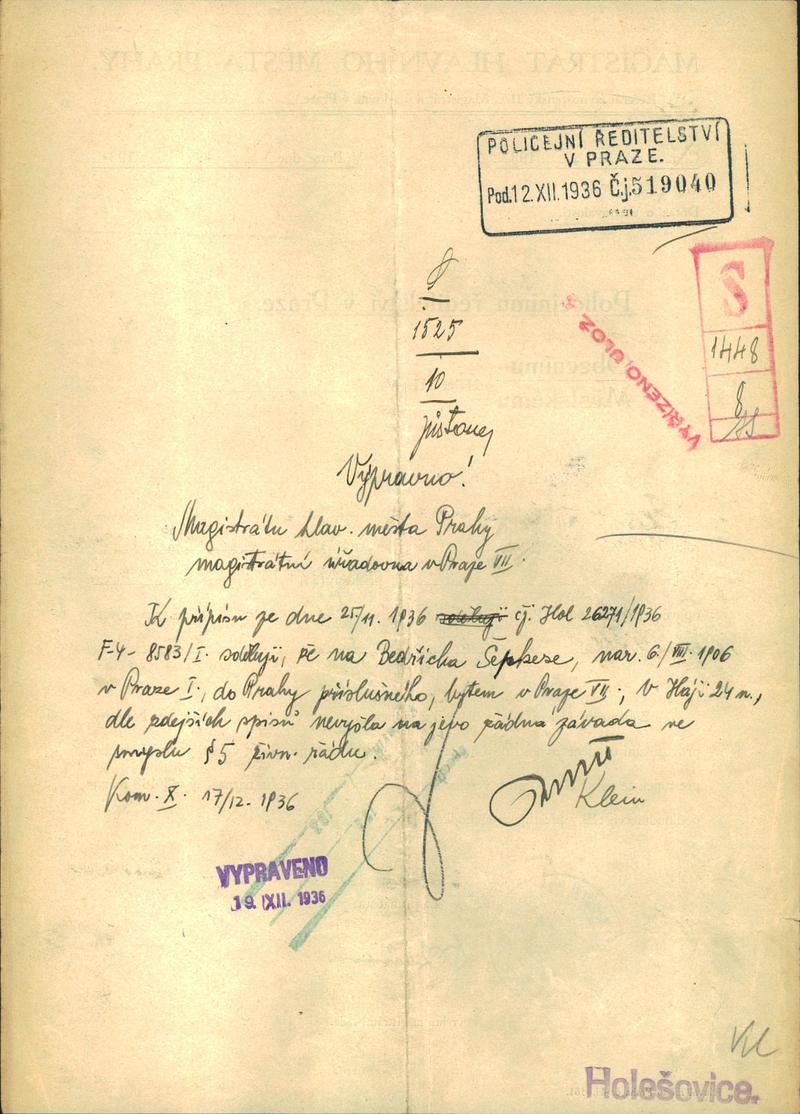 POLICEJNÍ ŘEDITELSTVÍ
V PRAZE.
Pod.12.XII.1936 Č.j.519040
S
1448
8
VYŘÍZENO, ULOŽ
1525
10
Vypravno!
Magistrátu hlav. města Prahy
magistrátní úřadovna v Praze VII.
K přípisu ze dne 25/11. 1936 sděluji čj. Hol 26271/1936
F-4- 8583/I. sděluji, že na Bedřicha Šepkese, nar. 6/VIII. 1906
v Praze I., do Prahy příslušného, bytem v Praze VII., V Háji 24 n.,
dle zdejších spisů nevyšla na jevo žádná závada ve
smyslu §5 živn. řádu.
Kom. X. 17/12. 1936
Klein
VYPRAVENO
19. XII. 1936
Kl
Holešovice.